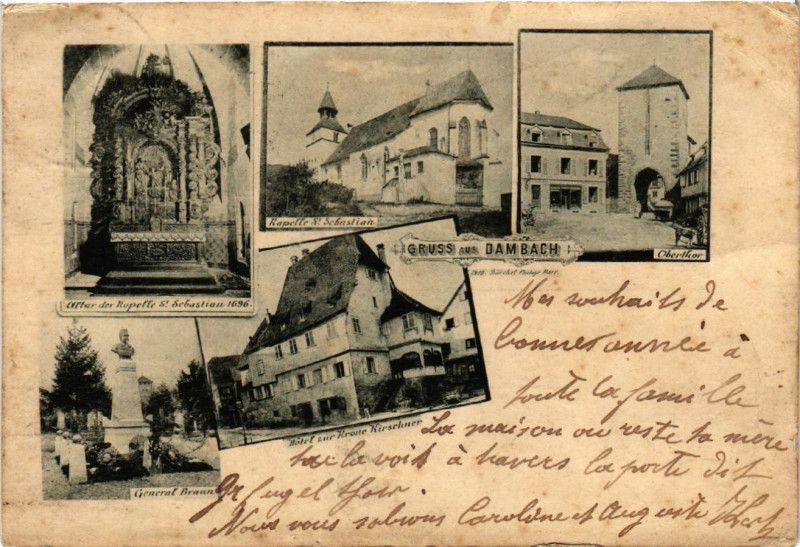 Altar der Kapelle St Sebastian 1696.
Kapelle St Sebastian.
Oberthor
GRUSS AUS DAMBACH
Hôtel zur Krone Kirschner
General Braun
Mes souhaits de
bonne année à
toute la famille
La maison ou reste ta mère
tu la vois à travers la porte dit
Nous vous saluons Caroline et Auguste